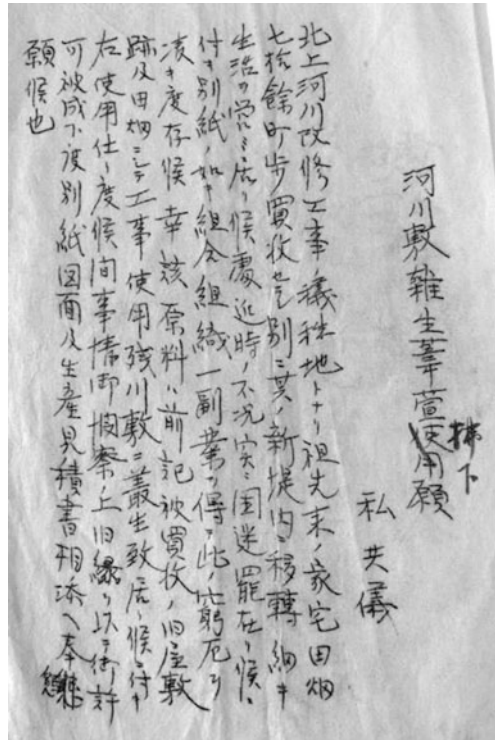 河川敷雑生葦萱使用願
拂下
私共儀
北上河川改修工事ノ犠牲地トナリ祖先来ノ家宅田畑
七拾餘町歩買收セラレ別ニ其ノ新堤内ニ移轉シ細キ
生活ヲ営ミ居リ候處近時ノ不況実ニ困迷罷在リ候ニ
付キ別紙ノ如キ組合組織一副業ヲ得テ此ノ窮厄ヲ
凌キ度存候幸該原料ハ前記被買收ノ旧屋敷
跡及田畑ニシテ工事使用残川敷ニ叢生致居リ候ニ付キ
右使用仕リ度候間事情御憫察ノ上旧縁ヲ以テ御許
可被成下度別紙図面及生産見積書相添ヘ奉懇
願候也